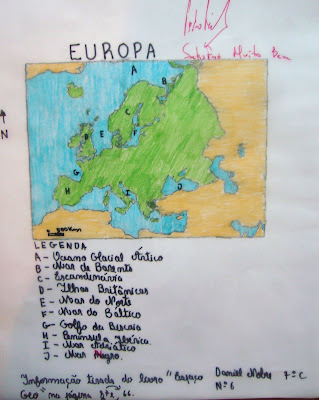 Satisfaz Muito Bem
EUROPA
A
B
C
D
E
F
G
H
I
J
N
500Km
LEGENDA
A - Oceano Glacial Ártico
B - Mar de Barents
C - Escandinávia
D - Ilhas Britânicas
E - Mar do Norte
F - Mar do Báltico
G - Golfo da Biscaia
H - Península Ibérica
I - Mar Adriático
J - Mar Negro.
"Informação tirada do livro "Espaço Daniel Nobre 7º C
Geo" na página 66. Nº 6